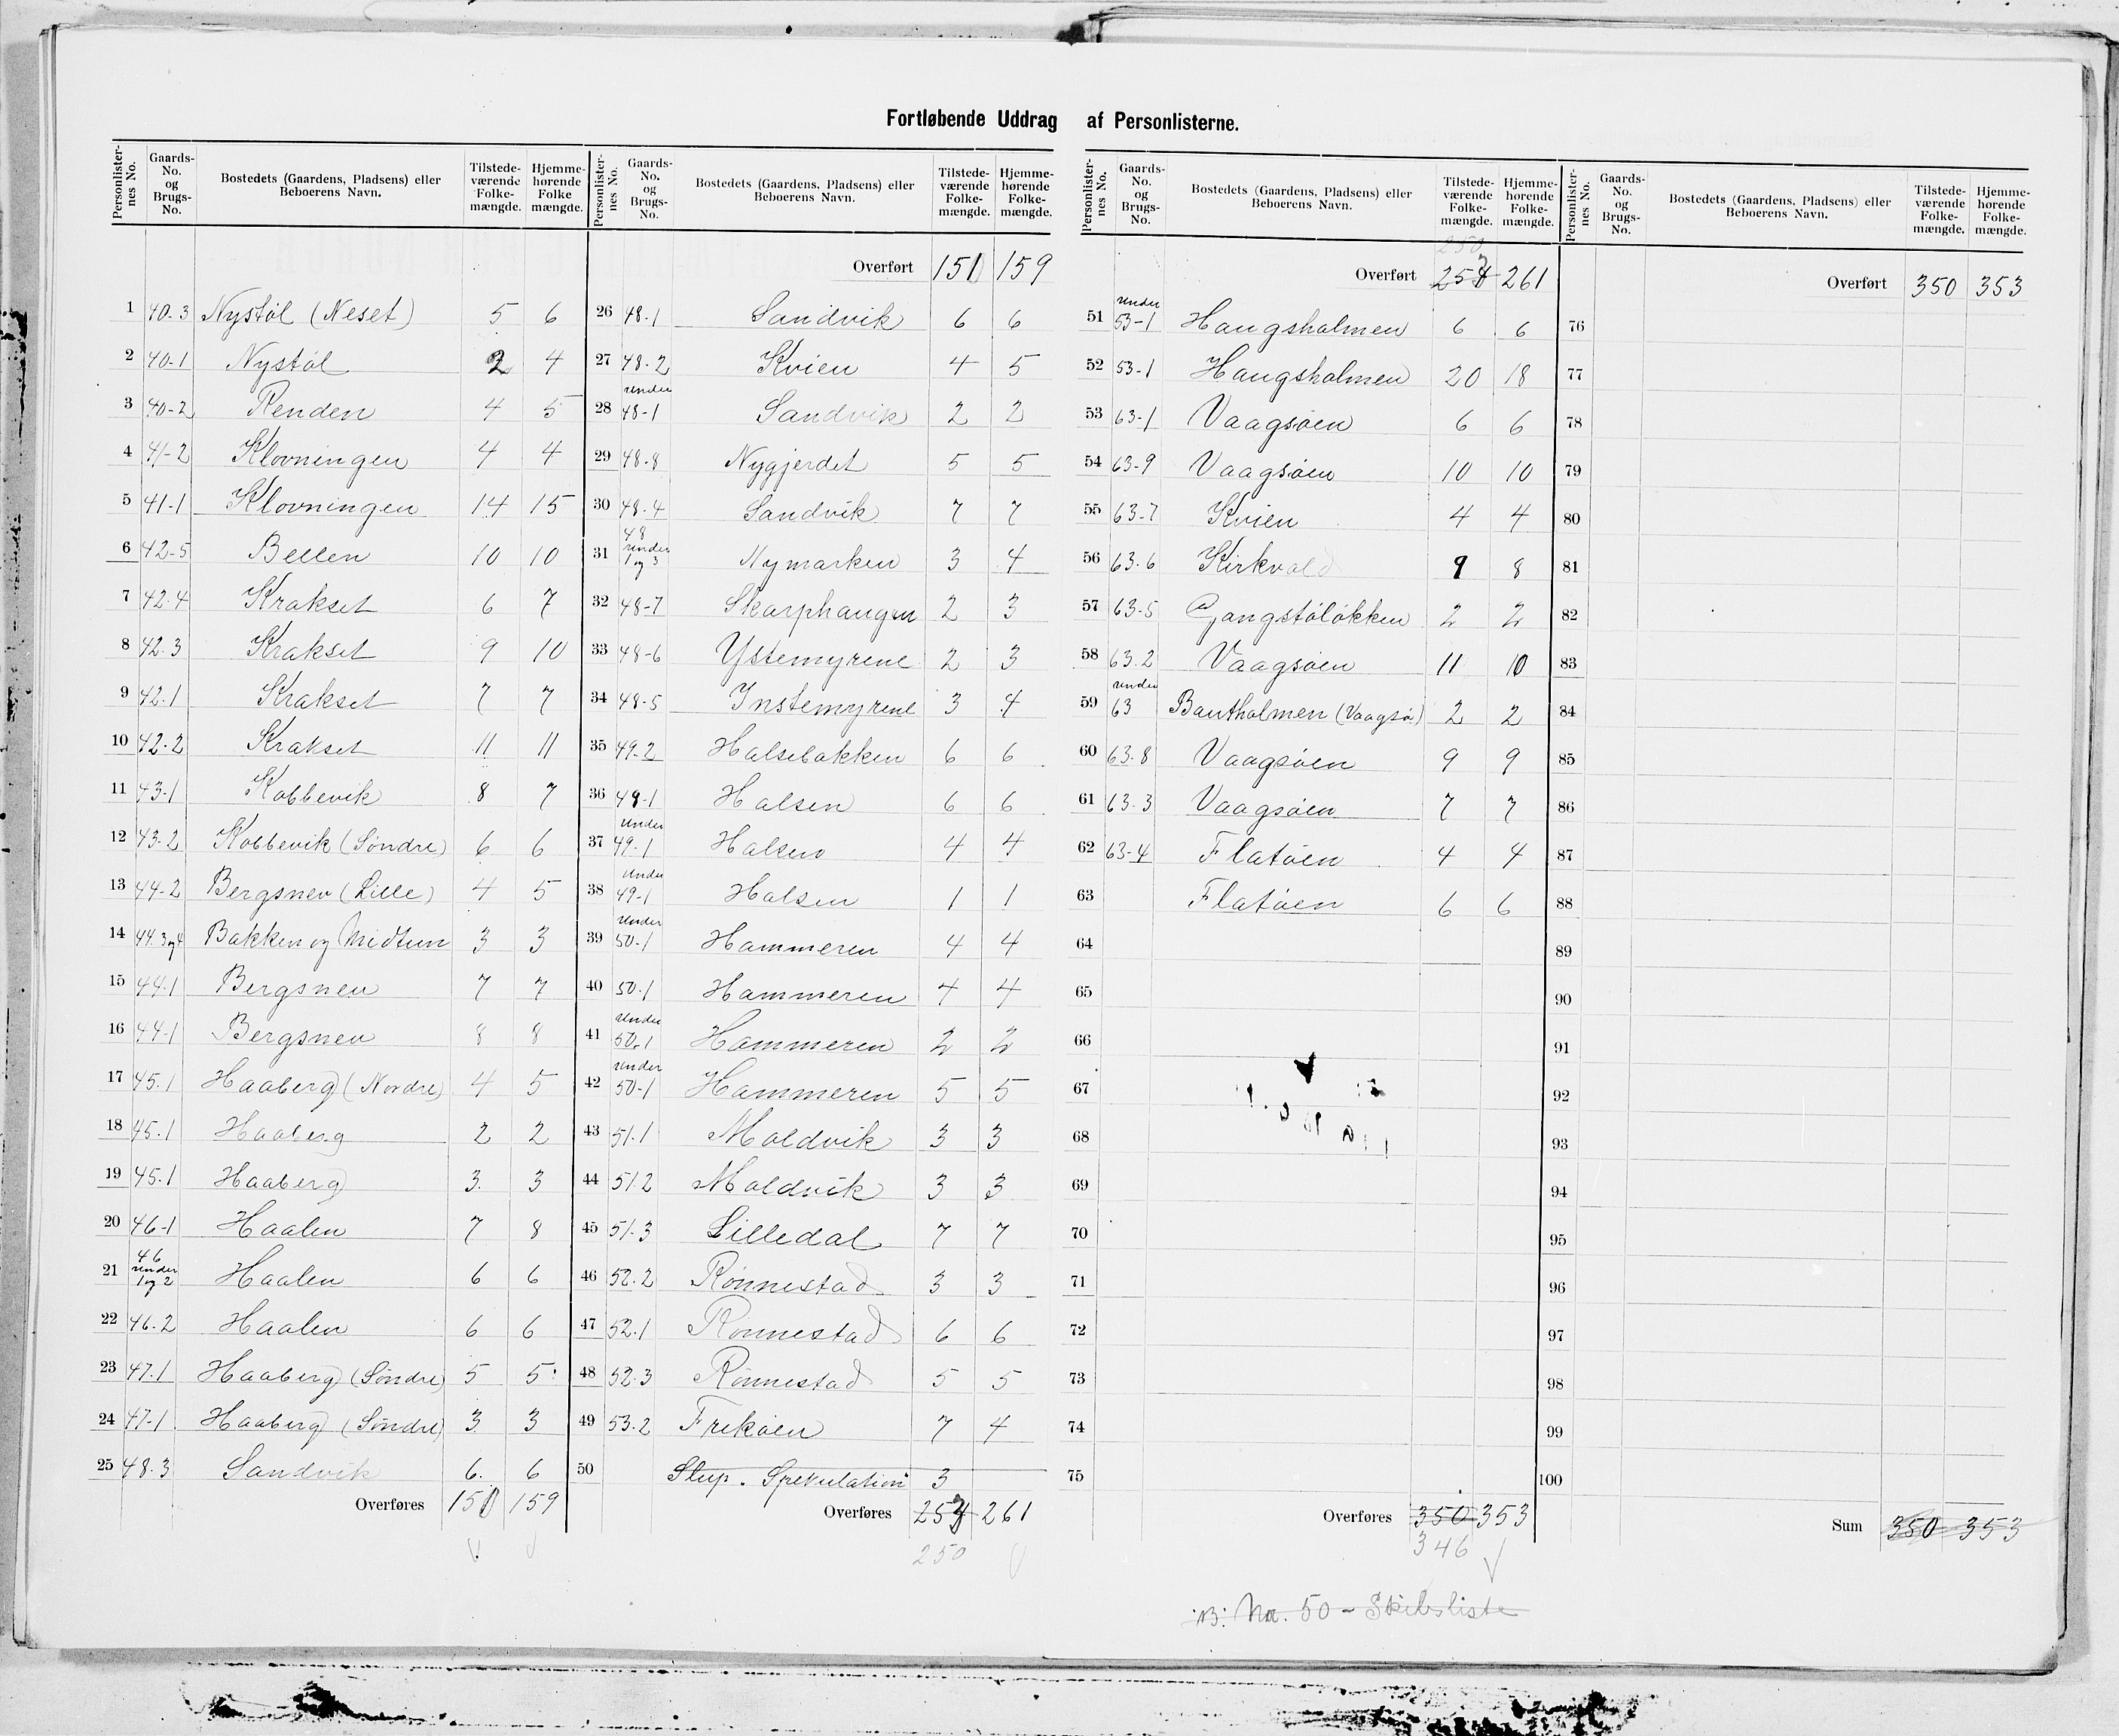 Fortløbende Uddrag af Personlisterne.
Personlister-nes No. Gaards-No. og Brugs-No. Bostedets (Gaardens, Pladsens) eller Beboerens Navn. Tilstede-værende Folke-mængde. Hjemme-hørende Folke mængde.
1 40-3 Nystøl (Neset) 5 6
2 40-1 Nystøl 2 4
3 40-2 Renden 4 5
4 41-2 Klovningen 4 4
5 41-1 Klovningen 14 15
6 42-5 Bellen 10 10
7 42.4 Krakset 6 7
8 42.3 Krakset 9 10
9 42.1 Krakset 7 7
10 42.2 Krakset 11 11
11 43-1 Kobbevik 8 7
12 43.2 Kobbevik (Søndre) 6 6
13 44-2 Bergsnev (Lille) 4 5
14 44.3og4 Bakken og Midtun 3 3
15 44.1 Bergsnev 7 7
16 44-1 Bergsnev 8 8
17 45.1 Haaberg (Nordre) 4 5
18 45.1 Haaberg 2 2
19 45.1 Haaberg 3. 3
20 46-1 Haalen 7 8
21 46 under 1 og 2 Haalen 6 6
22 46.2 Haalen 6 6
23 47.1 Haaberg (Søndre) 5 5
24 47-1. Haaberg (Søndre) 3 3
25 48.3 Sandvik 6. 6
Overføres 151 159
Personlister-nes No. Gaards-No. og Brugs-No. Bostedets (Gaardens, Pladsens) eller Beboerens Navn. Tilstede-værende Folke-mængde. Hjemme-hørende Folke-mængde.
Overført 151 159
26 48-1 Sandvik 6 6
27 48.2 Kvien 4 5
28 under 48-1 Sandvik 2 2
29 48.8 Nygjerdet 5 5
30 48-4 Sandvik 7 7
31 48 under 1 og 3 Nymarken 3 4
32 48-7 Skarphaugen 2 3
33 48-6 Ystemyrene 2 3
34 48-5 Instemyrene 3 4
35 49-2 Halsebakken 6 6
36 49-1 Halsen 6 6
37 under 49-1 Halsen 4 4
38 under 49-1 Halsen 1 1
39 under 50-1 Hammeren 4 4
40 50.1 Hammeren 4 4
41 under 50.1 Hammeren 2 2
42 under 50-1 Hammeren 5 5
43 51.1 Moldvik 3 3
44 51.2 Moldvik 3 3
45 51.3 Lilledal 7 7
46 52.2 Rønnestad 3 3
47 52.1 Rønnestad 6 6
48 52.3 Rønnestad 5 5
49 53.2 Frekøen 7 4
50 Slup. Spekulation 3
Overføres 253 261
250
Personlister-nes No. Gaards-No. og Brugs-No. Bostedets (Gaardens, Pladsens) eller Beboerens Navn. Tilstede-værende Folke-mængde. Hjemme-hørende Folke-mængde.
250
Overført 253 261
51 under 53-1 Haugsholmen 6 6
52 53-1 Haugsholmen 20 18
53 63-1 Vaagsøen 6 6
54 63-9 Vaagsøen 10 10
55 63-7 Kvien 4 4
56 63.6 Kirkvold 9 8
57 63-5 Gangstøløkken 2 2
58 63.2 Vaagsøen 11 10
59 under 63 Bautholmen (Vaagsø) 2 2
60 63.8 Vaagsøen 9 9
61 63.3 Vaagsøen 7 7
62 63-4 Flatøen 4 4
63 Flatøen 6 6
64
65
66
67
68
69
70
71
72
73
74
75
Overføres 350 353
346
No. 50 - Skibsliste
Personlister-nes No. Gaards-No. og Brugs-No. Bostedets (Gaardens, Pladsens) eller Beboerens Navn. Tilstede-værende Folke-mængde. Hjemme-hørende Folke-mængde.
Overført 350 353
76
77
78
79
80
81
82
83
84
85
86
87
88
89
90
91
92
93
94
95
96
97
98
99
100
Sum 350 353